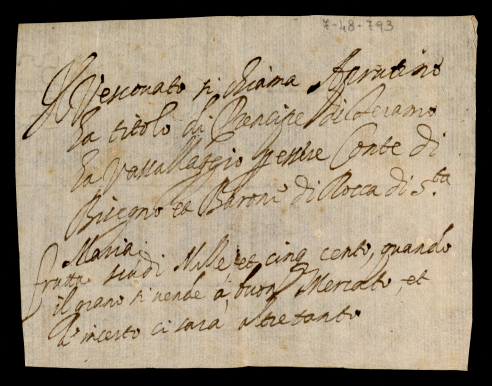 7-48-793
Il Vescovato si chiama Aprutino
ha titolo di Prencipe di Teramo
ha Vassallaggio p essere Conte di
Bisegno et Barone di Rocca di S.ta
Maria
frutta scudi Mille et cinq cento, quando
il grano si vende à buon Mercato, et
l'incerto ci sarà altretanto